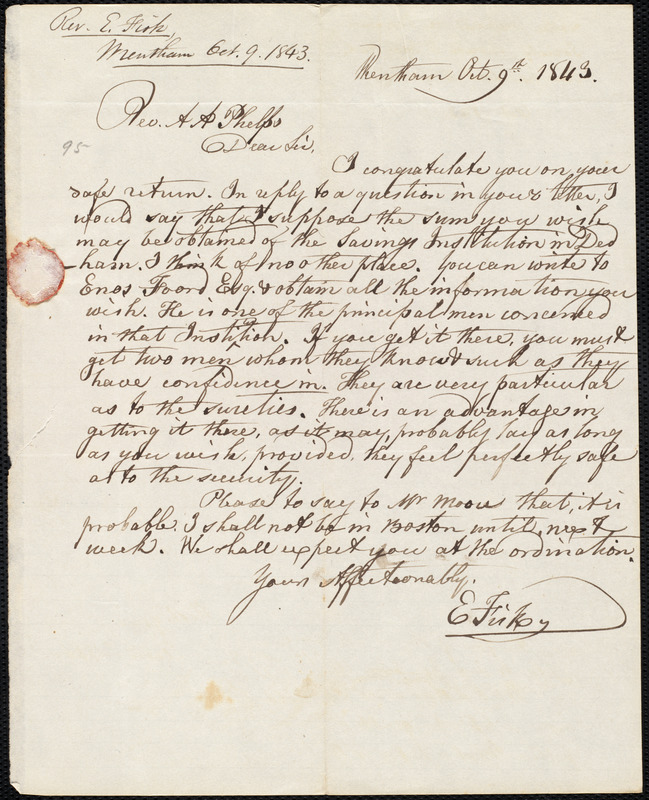 Rev. E. Fisk,
Wrentham Oct. 9. 1843.
Wrentham Oct. 9th. 1843.
Rev. A A Phelps
Dear Sir,
95
I congratulate you on your
safe return. In reply to a question in your letter, I
would say that I suppose the sum you wish
may be obtained of the Savings Institution in Ded
ham. I think of no other place. You can write to
Enos Foord Esq. & obtain all the information you
wish. He is one of the principal men concerned
in that Institution. If you get it there, you must
get two men whom they know & such as they
have confidence in. They are very particular
as to the sureties. There is an advantage in
getting it there, as it may, probably lay as long
as you wish, provided, they feel perfectly safe
as to the security.
Please to say to Mr Moore that, it is
probable I shall not be in Boston until next
week. We shall expect you at the ordination.
Yours Affectionably.
E Fisk